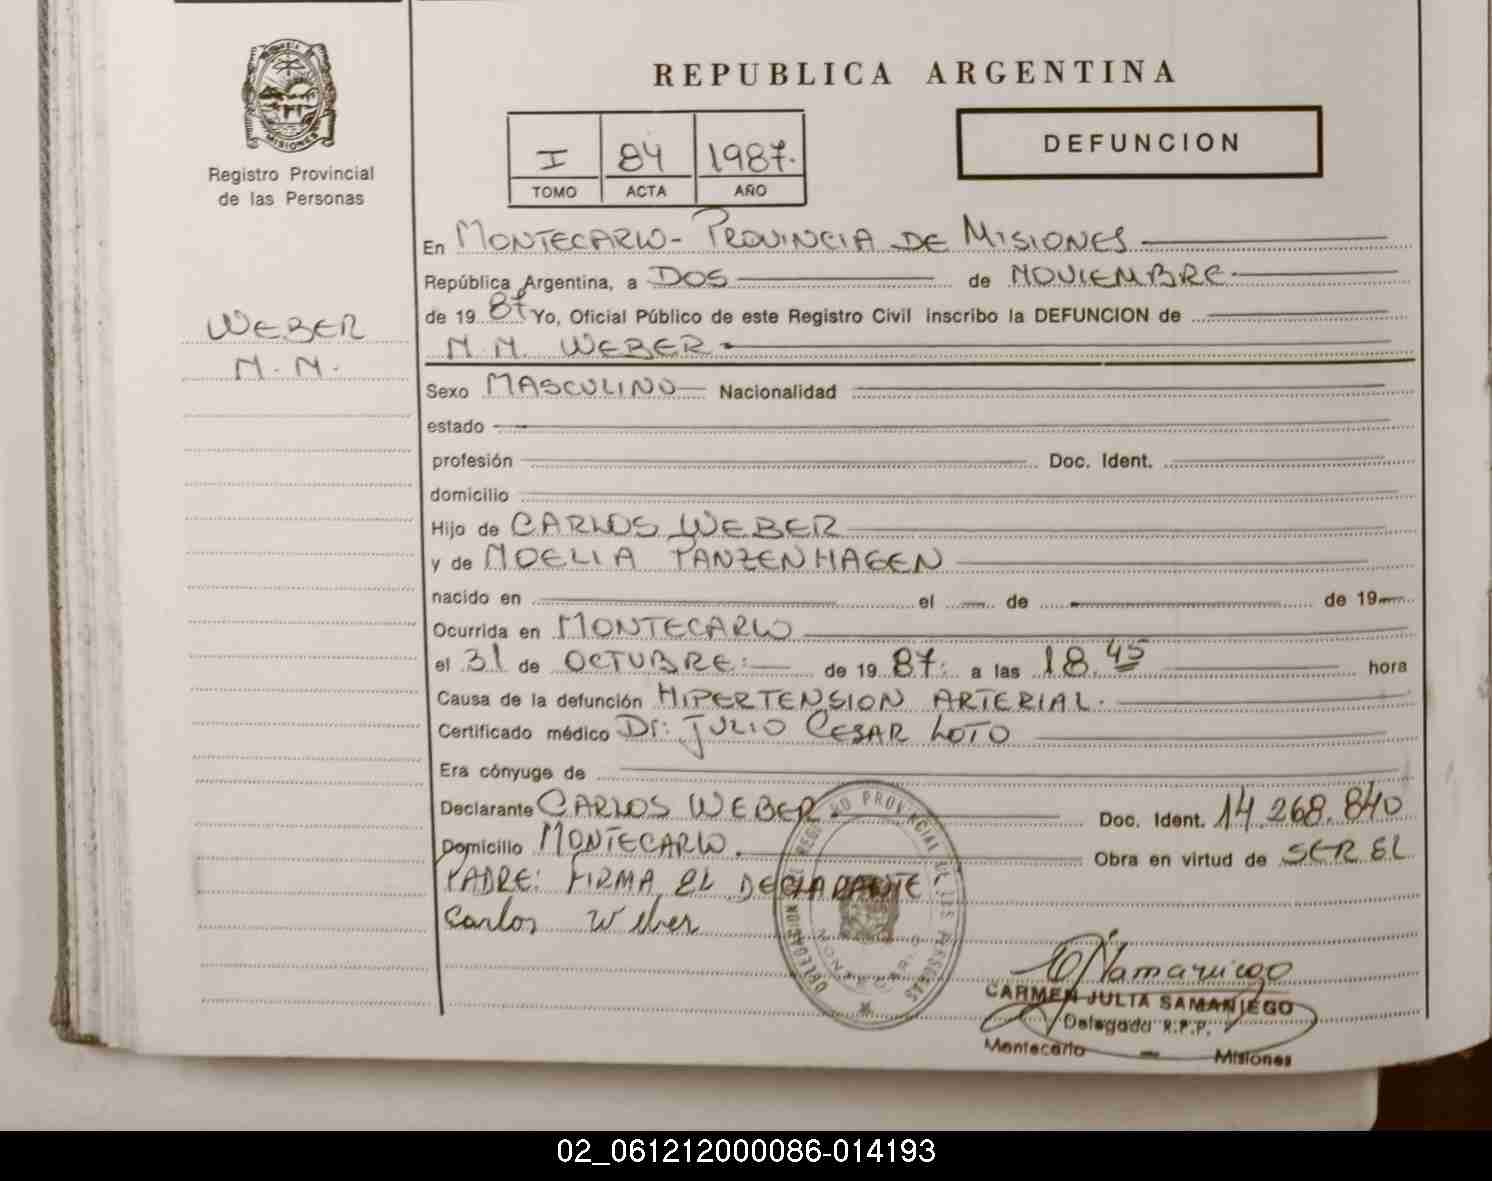 REPUBLICA ARGENTINA
MISIONES
Registro Provincial
de las Personas
I 84 1987.
TOMO ACTA AÑO
DEFUNCION
WEBER
N. N.
En MONTECARLO - PROVINCIA DE MISIONES
República Argentina, a DOS de NOVIEMBRE
de 19 87 Yo, Oficial Público de este Registro Civil inscribo la DEFUNCION de
N. N. WEBER
Sexo MASCULINO Nacionalidad
estado
profesión Doc. Ident.
domicilio
Hijo de CARLOS WEBER
y de NOELIA PANZENHAGEN
nacido en el de de 19
Ocurrida en MONTECARLO
el 31 de OCTUBRE: de 19 87. a las 18.45 hora
Causa de la defunción HIPERTENSION ARTERIAL.
Certificado médico Dr: JULIO CESAR LOTO
Era cónyuge de
Declarante CARLOS WEBER Doc. Ident. 14.268.840
Domicilio MONTECARLO. Obra en virtud de SER EL
PADRE: FIRMA EL DECLARANTE.
Carlos Weber
REGISTRO PROVINCIAL DE LAS PERSONAS
DELEGACION
MONTECARLO
CARMEN JULIA SAMANIEGO
Delegada R.P.P.
Montecarlo - Misiones
02_061212000086-014193